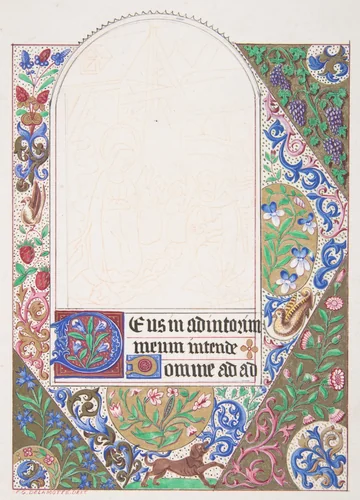 DEus in adiutorium
meum intende
Domine ad ad
F G DELAMOTTE. DELT